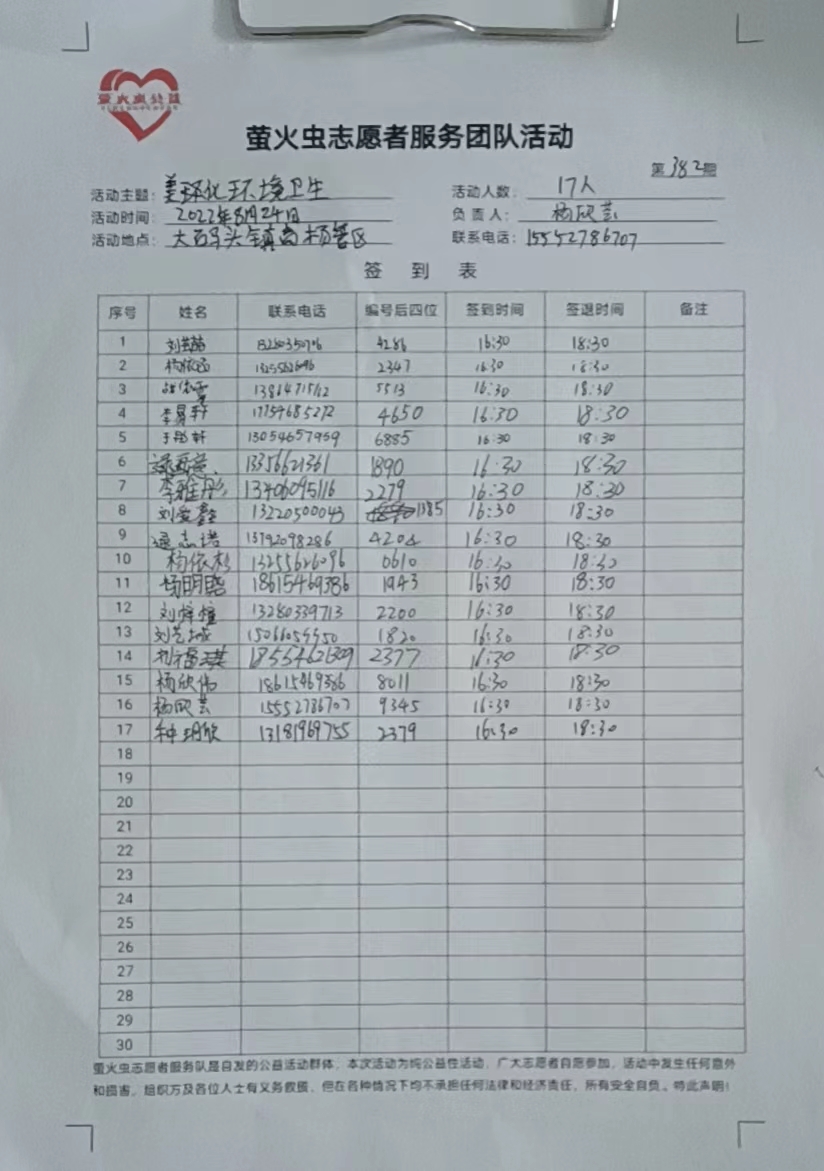 萤火虫公益
萤火虫志愿者服务团队活动
第382期
活动主题: 美环化环境卫生 活动人数: 17人
活动时间: 2022年8月24日 负责人: 杨欣芸
活动地点: 大码头镇 联系电话: 15552786707
签 到 表
序号 姓名 联系电话 编号后四位 签到时间 签退时间 备注
1 4286 16:30 18:30
2 杨依涵 13255626096 2347 16:30 18:30
3 5513 16:30 18:30
4 李易轩 17754685272 4650 16:30 18:30
5 于彤轩 13054657959 6885 16:30 18:30
6 13356621361 1890 16:30 18:30
7 李雅彤 13406095116 2279 16:30 18:30
8 刘安鑫 13220500043 1385 16:30 18:30
9 逯志诺 13792098286 4204 16:30 18:30
10 杨依杉 13255626096 0610 16:30 18:30
11 杨明晓 18615469386 1943 16:30 18:30
12 13280339713 2200 16:30 18:30
13 1820 16:30 18:30
14 2377 16:30 18:30
15 杨欣伟 18615469386 8011 16:30 18:30
16 杨欣芸 15552786707 9345 16:30 18:30
17 种玥欣 13181969755 2379 16:30 18:30
18
19
20
21
22
23
24
25
26
27
28
29
30
萤火虫志愿者服务队是自发的公益活动群体，本次活动为纯公益性活动，广大志愿者自愿参加，活动中发生任何意外
和损害，组织方及各位人士有义务救援，但在各种情况下均不承担任何法律和经济责任，所有安全自负。特此声明！